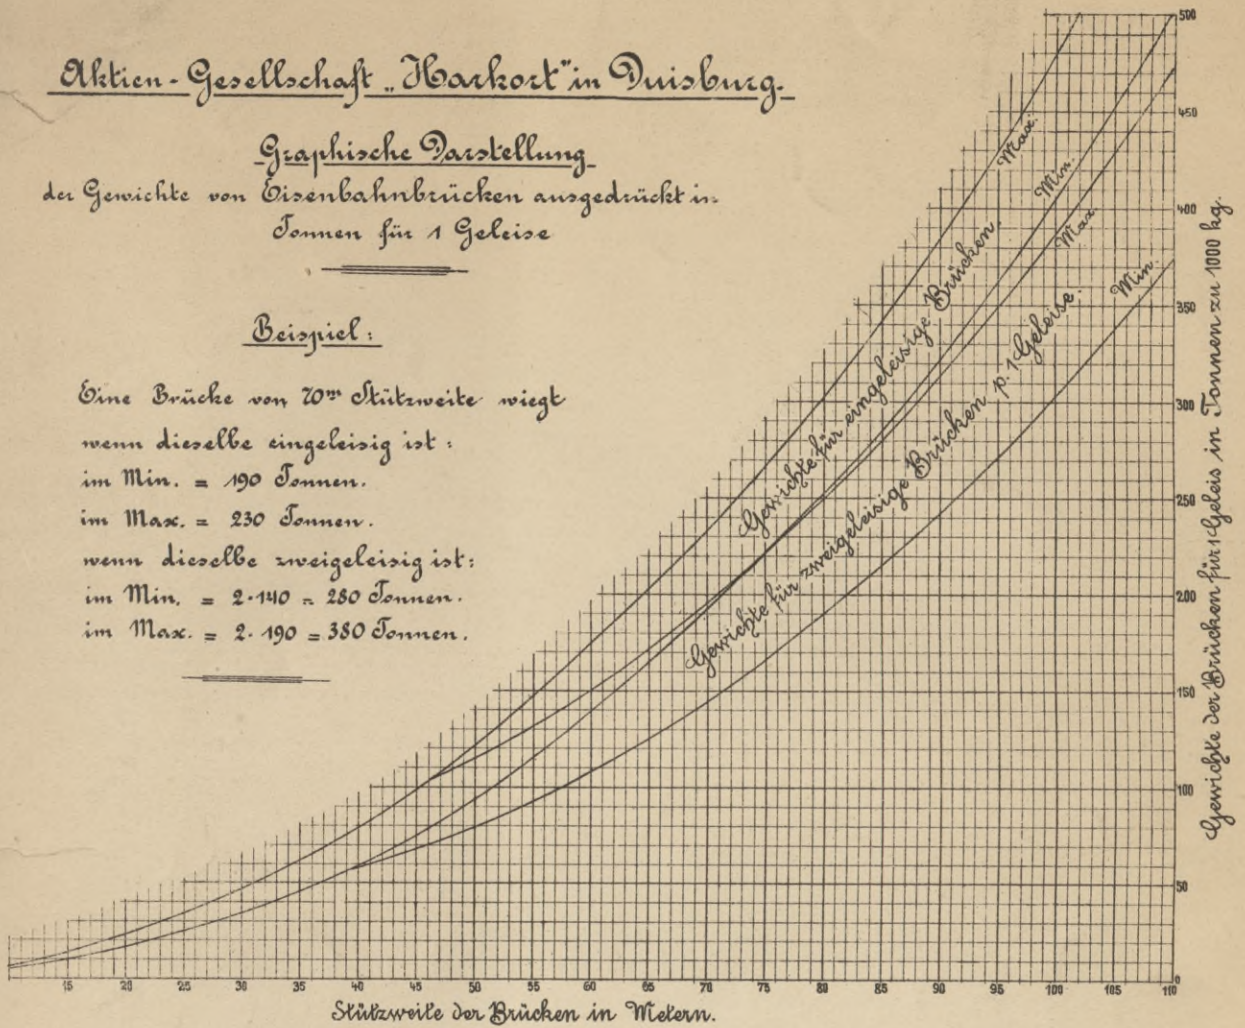 Aktien-Gesellschaft „Harkort" in Duisburg.
Graphische Darstellung
der Gewichte von Eisenbahnbrücken ausgedrückt in
Tonnen für 1 Geleise
Beispiel:
Eine Brücke von 70m Stützweite wiegt
wenn dieselbe eingeleisig ist:
im Min. = 190 Tonnen.
im Max. = 230 Tonnen.
wenn dieselbe zweigeleisig ist:
im Min. = 2·140 = 280 Tonnen.
im Max. = 2·190 = 380 Tonnen.
Max.
Min.
Max.
Min.
Gewichte für eingeleisige Brücken.
Gewichte für zweigeleisige Brücken p. 1 Geleise.
500
450
400
350
300
250
200
150
100
50
0
Gewichte der Brücken für 1 Geleis in Tonnen zu 1000 kg.
15 20 25 30 35 40 45 50 55 60 65 70 75 80 85 90 95 100 105 110
Stützweite der Brücken in Metern.